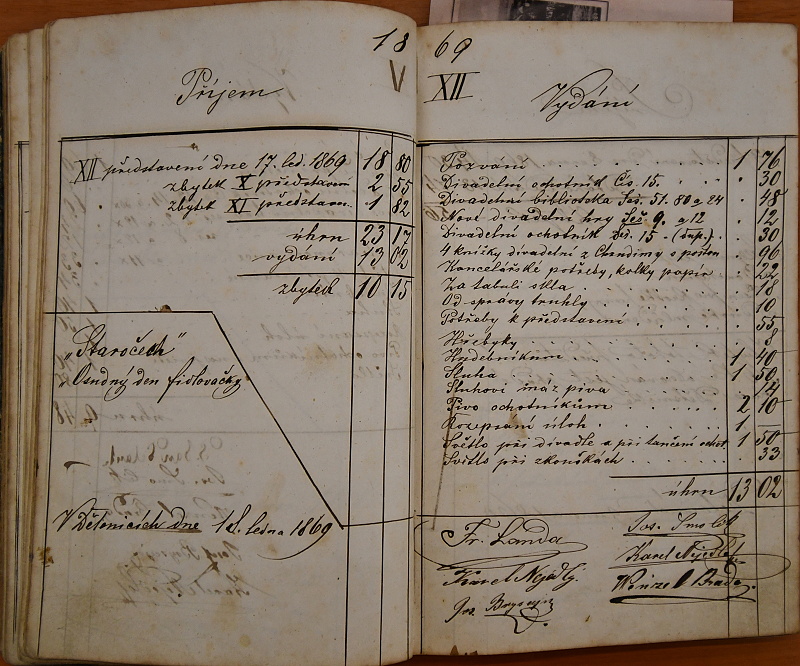 18
V
Příjem
XII představení dne 17. led. 1869 18 80
zbytek X představení 2 55
zbytek XI představení 1 82
úhrn 23 17
vydání 13 02
zbytek 10 15
„Staročech"
Osudný den fidlovačky
V Dětenicích dne 18. ledna 1869
69
XII
Vydání
Pozvání 1 76
Divadelní ochotník Čís. 15. . 30
Divadelní bibliotéka Seš. 51. 80 a 24 . 48
Nové divadelní hry Seš 9. a 12 . 12
Divadelní ochotník Seš. 15 - . 30
4 knížky divadelní z Chrudimi s poštou . 96
Kancelářské potřeby, kolky papír . 22
Za tabuli skla . 18
Od správy truhly . 10
Potřeby k představení . 55
Hřebyky . 8
Hudebníkům 1 40
Sluha 1 50
Sluhovi máz piva
Pivo ochotníkům 2 10
Rozepsání úloh 1 .
Světlo při divadle a při tančení ochot. 1 50
Světlo při zkouškách . 33
úhrn 13 02
Fr. Landa
Jos. Smolík
Karel Nejedlý
Karel Nejedlý
Jos.
Wenzel Brada